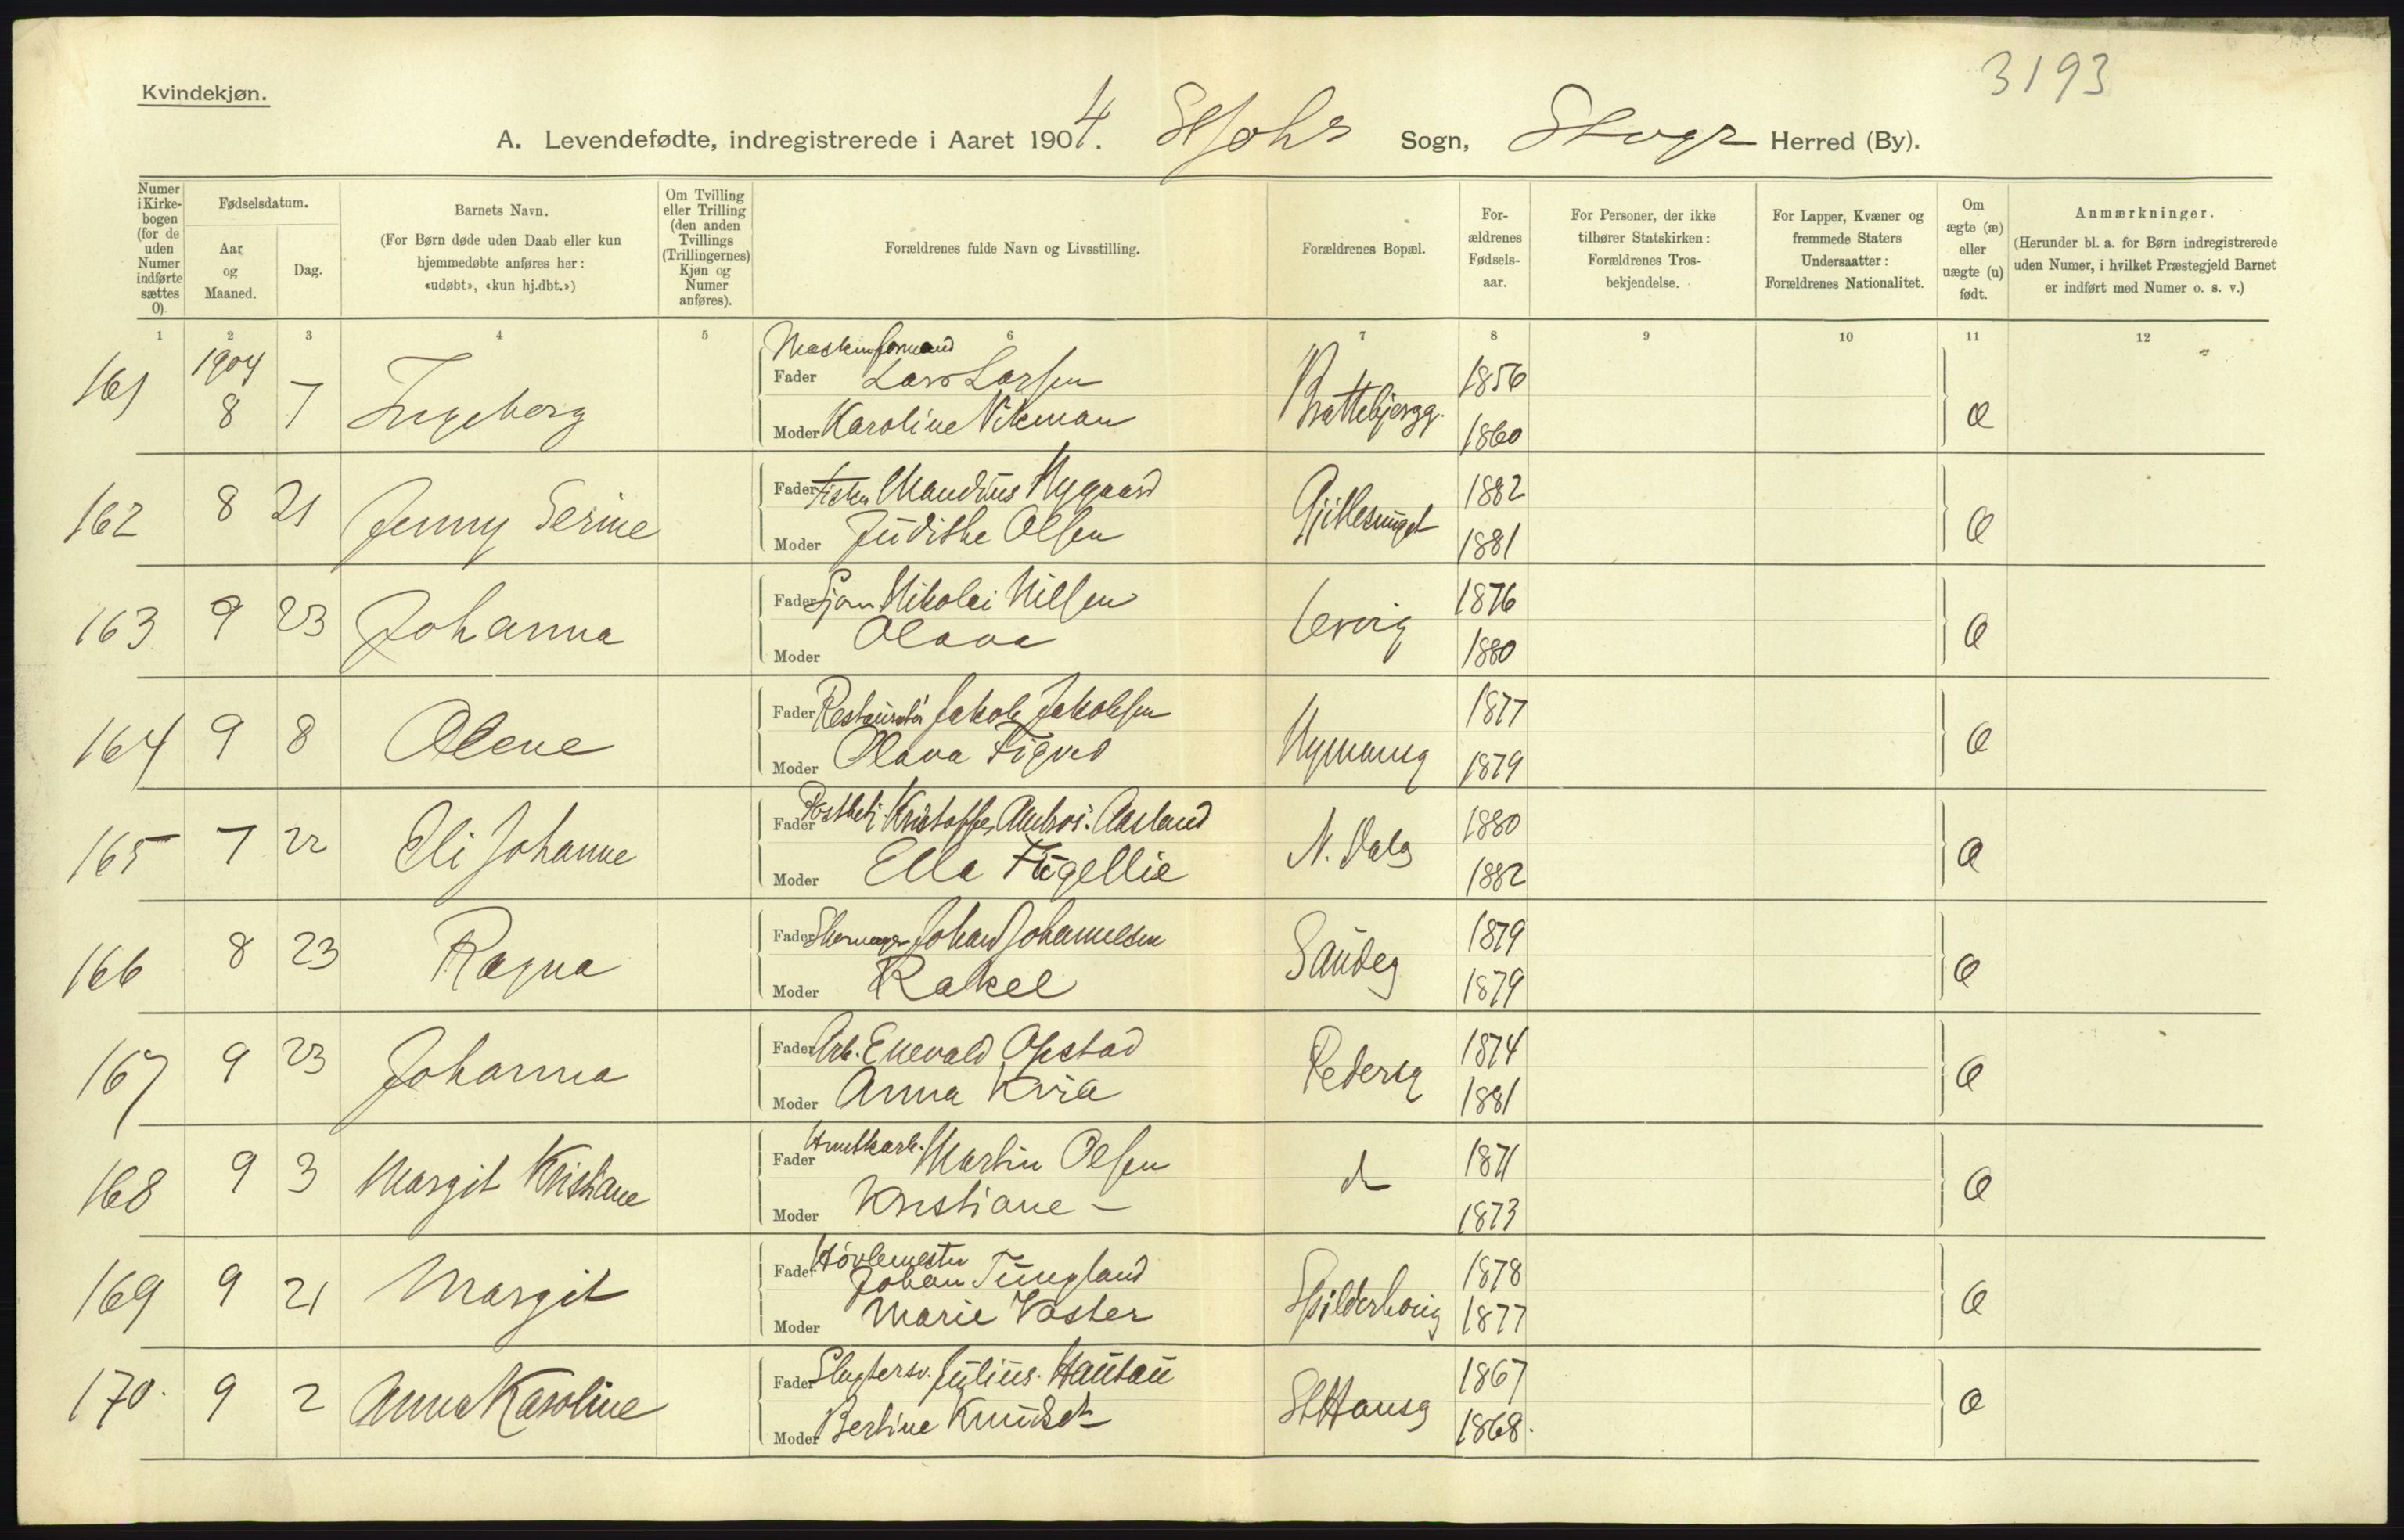 3193
Kvindekjøn.
A. Levendefødte, indregistrerede i Aaret 1904. St Johs Sogn, Stvgr Herred (By).
Numer i Kirkebogen (for de uden Numer indførte sættes 0)
Fødselsdatum.
Aar og Maaned.
Dag.
Barnets Navn.
(For Børn døde uden Daab eller kun hjemmedøbte anføres her: «udøbt», «kun hj.dbt.»)
Om Tvilling eller Trilling (den anden Tvillings (Trillingernes) Kjøn og Numer anføres).
Forældrenes fulde Navn og Livsstilling.
Forældrenes Bopæl.
Forældrenes Fødselsaar.
For Personer, der ikke tilhører Statskirken: Forældrenes Trosbekjendelse.
For Lapper, Kvæner og fremmede Staters Undersaatter: Forældrenes Nationalitet.
Om ægte (æ) eller uægte (u) født.
Anmærkninger.
(Herunder bl. a. for Børn indregistrerede uden Numer, i hvilket Præstegjeld Barnet er indført med Numer o. s. v.)
1 2 3 4 5 6 7 8 9 10 11 12
1904
Maskinformand
161 8 7 Ingeborg Fader Lars Larsen Brattebjergg. 1856 æ
Moder Karoline Vikman 1860
162 8 21 Jenny Serine Fader Fisker Maudius Nygaard Gjillesunget 1882 æ
Moder Judithe Olsen 1881
163 9 23 Johanna Fader Sjøm Nikolai Nilsen Lervig 1876 æ
Moder Olava 1880
164 9 8 Olene Fader Restauratør Jakob Jakobsen Nymansg 1877 æ
Moder Olava Figved 1879
165 7 22 Eli Johanne Fader Postbetj. Kristoffer Ambros. Aasland N. Dalg 1880 æ
Moder Ella Fugellie 1882
166 8 23 Ragna Fader Skomager Johan Johannesen Sandeg 1879 æ
Moder Rakel 1879
167 9 23 Johanna Fader Arb. Enevald Opstad Pedersg 1874 æ
Moder Anna Kvia 1881
168 9 3 Margit Kristiane Fader Martin Olsen do 1871 æ
Moder Kristiane – 1873
169 9 21 Margit Fader Høvlemester Johan Tungland Spilderhaug 1878 æ
Moder Marie Vaster 1877
170. 9 2 Anna Karoline Fader Slagtersv. Julius Hautau St Hansg 1867 æ
Moder Bertine Knudsdt 1868.